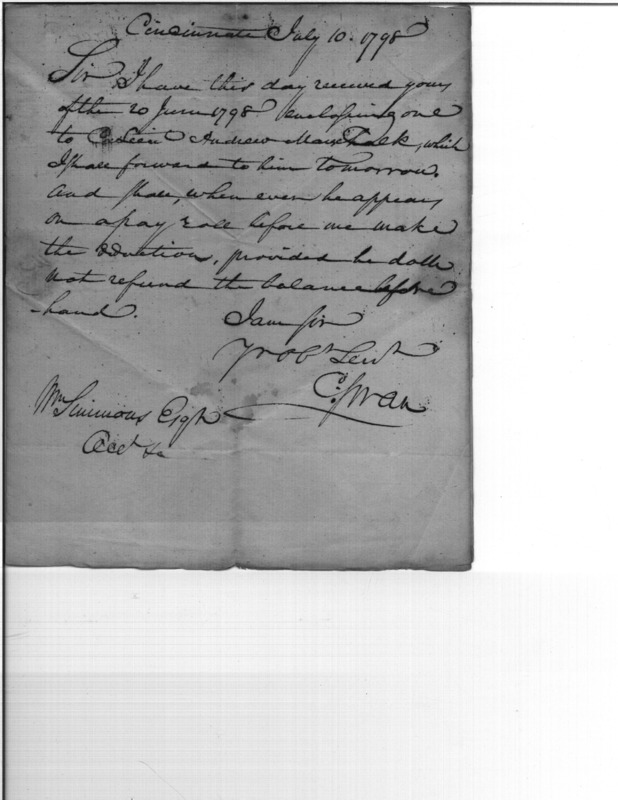 Cincinnati July 10. 1798
Sir I have this day received yours
of the 20 June 1798 enclosing one
to Andrew Mars Chalk, which
I shall forward to him tomorrow.
And shall, when ever he appears
on a pay roll before me make
the deduction, provided he doth
not refund the balance before
-hand.
I am Sir
Yr Obt Servt
C: Swan
Wm Simmons Esqr
Acct &c